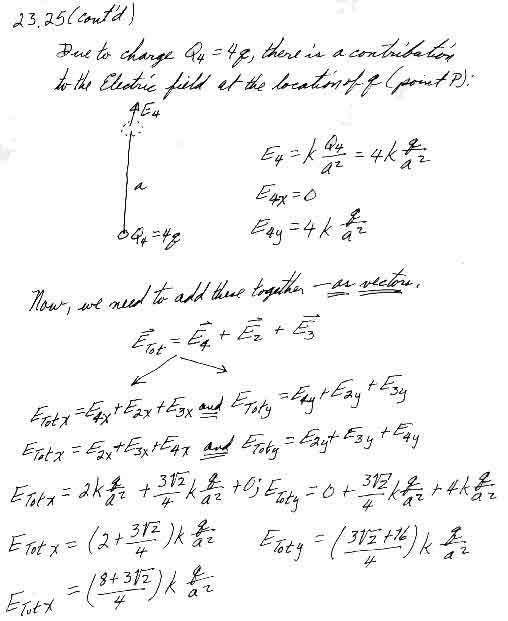 23.25 (cont'd)
Due to charge Q₄ = 4q, there is a contribution
to the Electric field at the location of q (point P):
E₄
a
Q₄ = 4q
E₄ = k Q₄/a² = 4k q/a²
E₄ₓ = 0
E₄y = 4k q/a²
Now, we need to add these together – as vectors.
E⃗Tot = E⃗₄ + E⃗₂ + E⃗₃
ETotx = E₄x + E₂x + E₃x and EToty = E₄y + E₂y + E₃y
ETotx = E₂x + E₃x + E₄x and EToty = E₂y + E₃y + E₄y
ETotx = 2k q/a² + 3√2/4 k q/a² + 0; EToty = 0 + 3√2/4 k q/a² + 4k q/a²
ETotx = (2 + 3√2/4) k q/a² EToty = (3√2+16/4) k q/a²
ETotx = (8+3√2/4) k q/a²